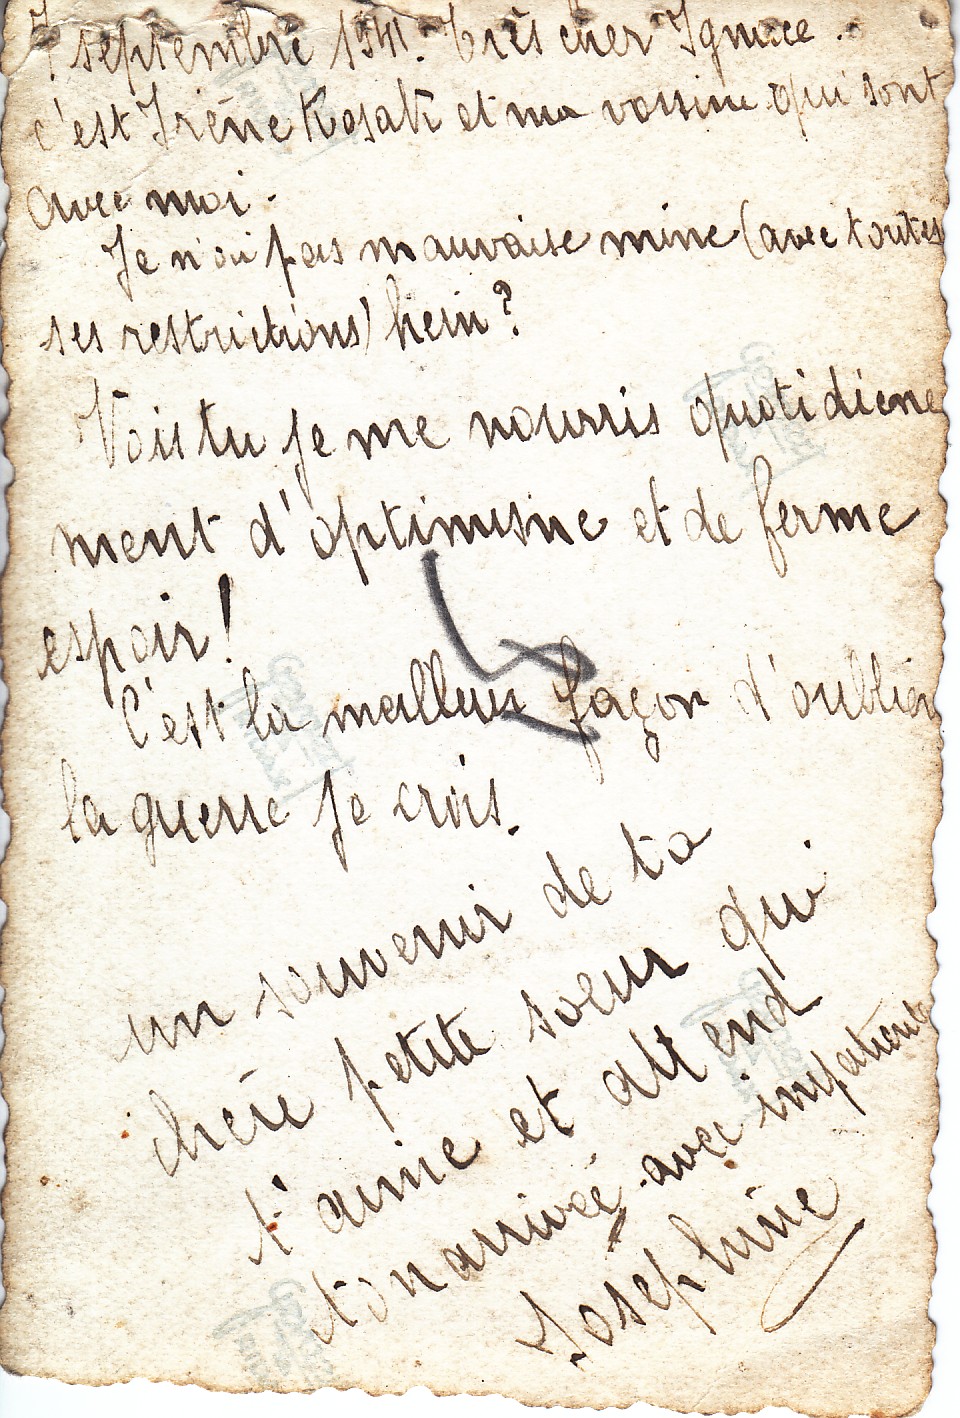 7 septembre 1941. Très cher Ignace.
c'est Irène Kosak et ma voisine qui sont
avec moi.
Je n'ai pas mauvaise mine (avec toutes
ses restrictions) hein?
Vois tu je me nourris quotidiene
ment d'optimisme et de ferme
espoir!
C'est la meilleur façon d'oublier
la guerre je crois.
un souvenir de ta
chère petite soeur qui
t'aime et attend
ton arrivée avec impatience
Joséphine